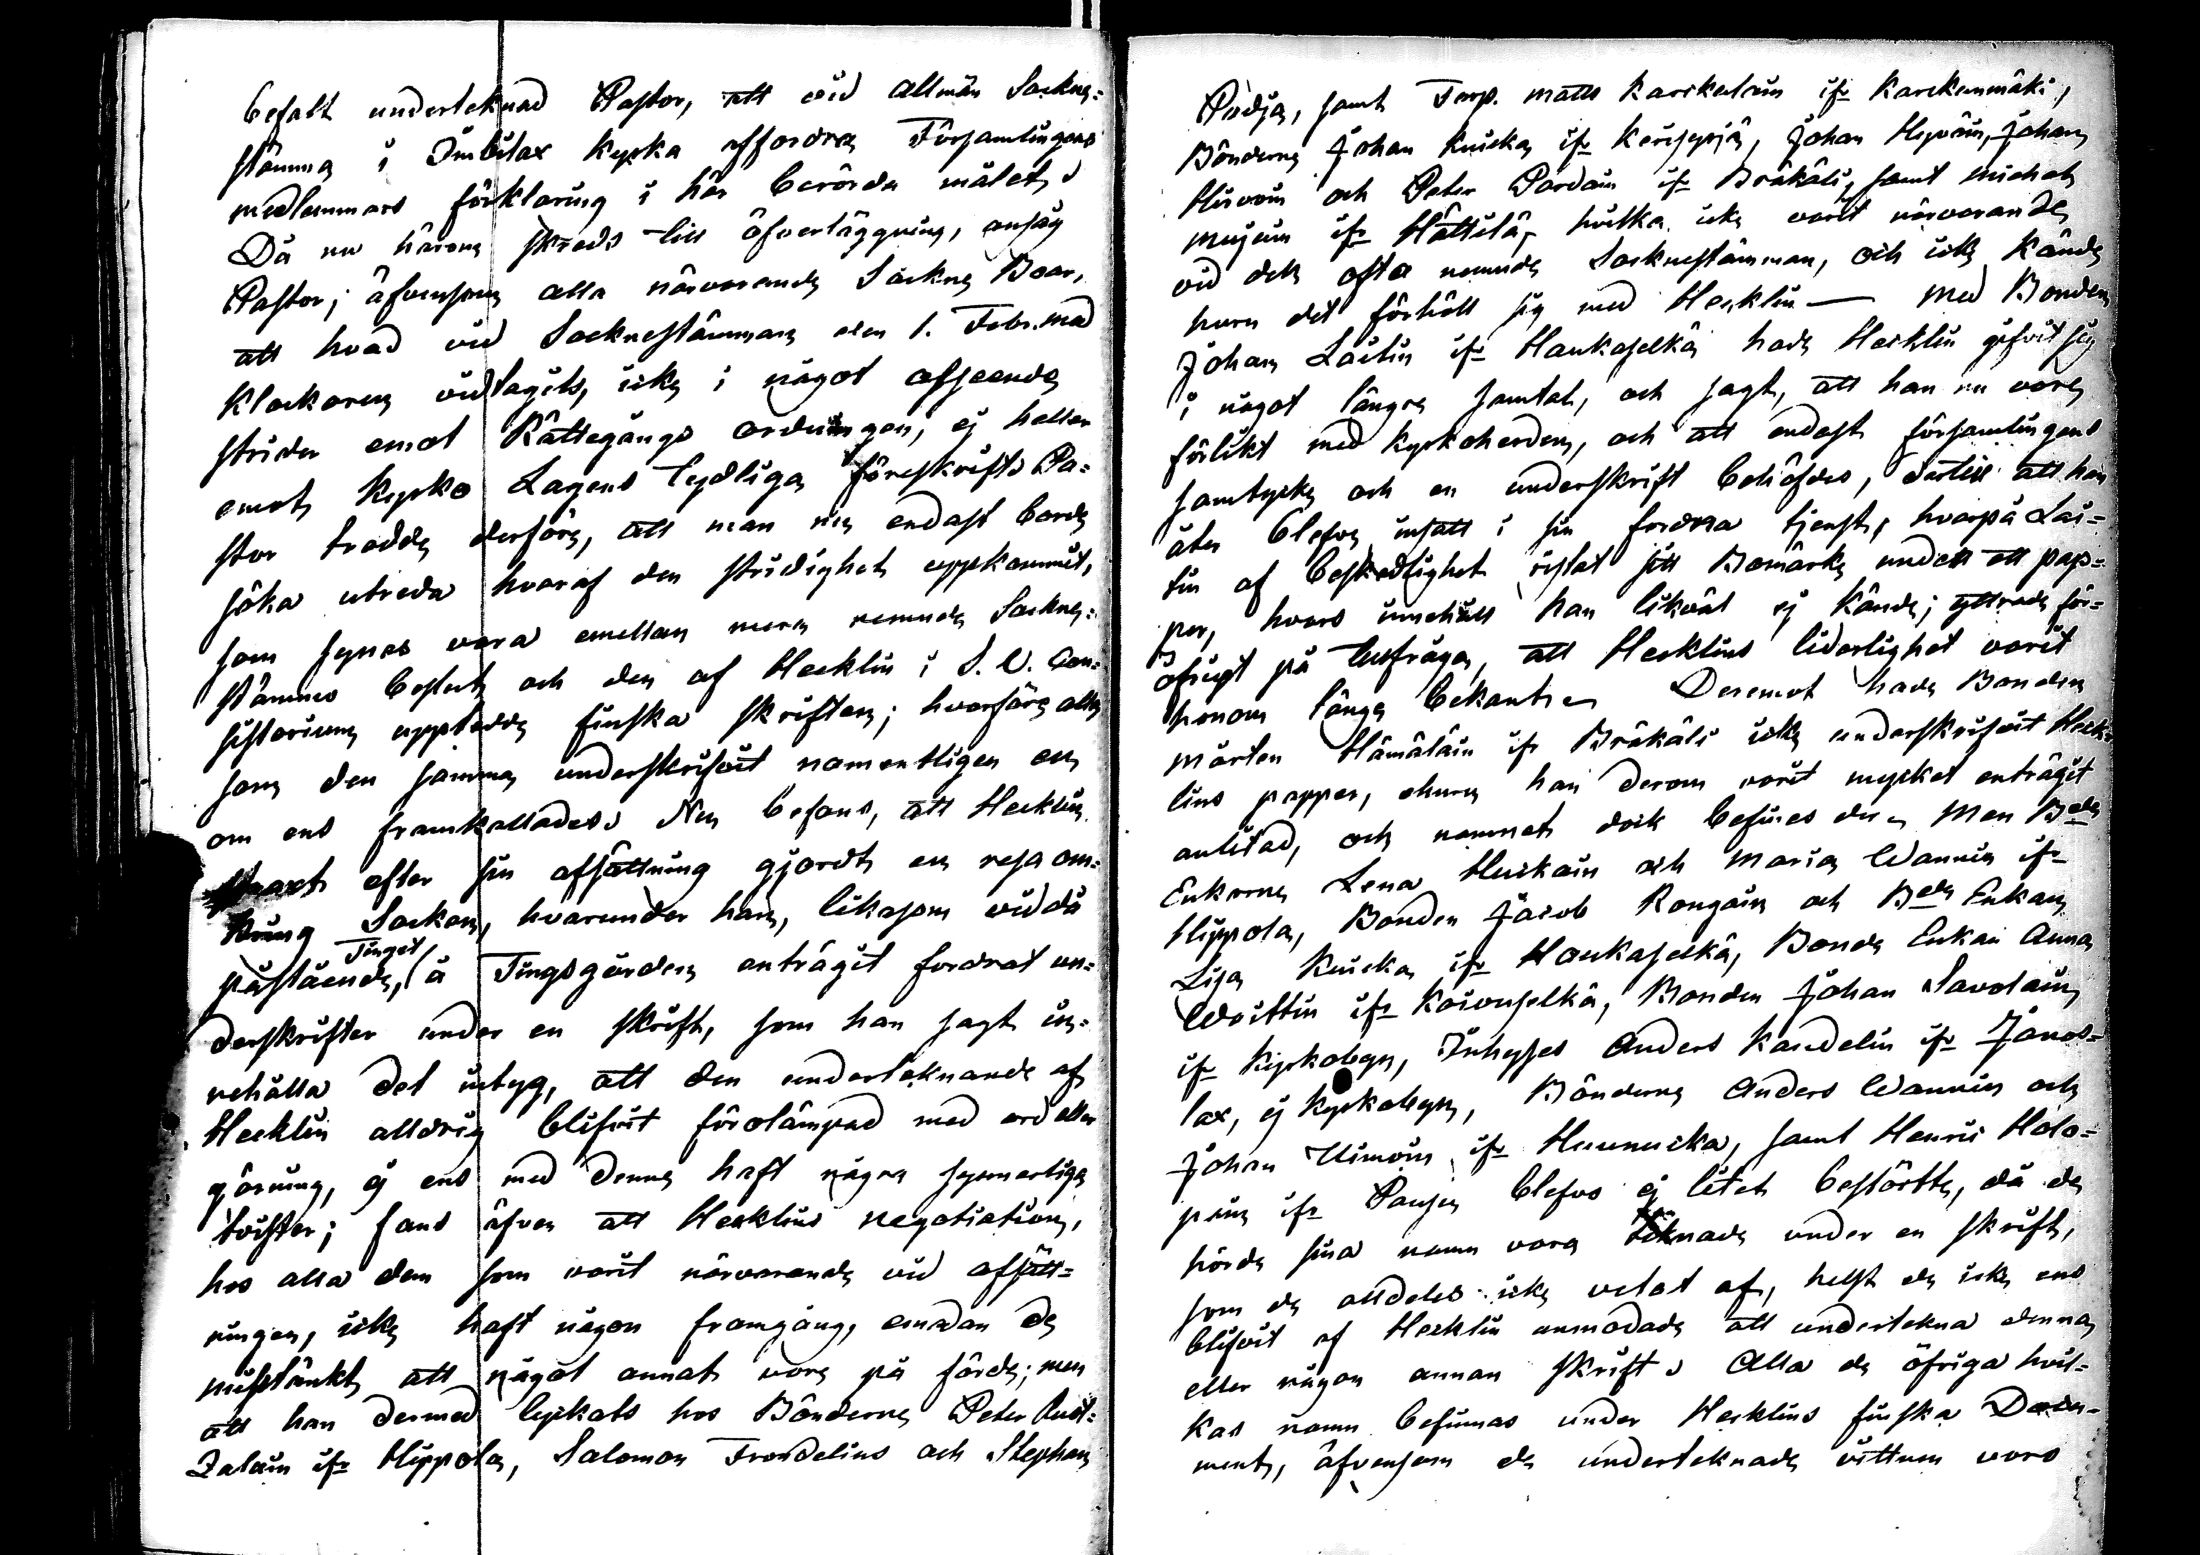 befalt underteknad Pastor, att vid allmän Sockne-
stämma i Imbilax kyrka affordra Församlingens
medlemmars förklaring i här berörda målet.
Då nu härom skreds till öfverläggning, ansåg
Pastor, äfvensom alla närvarande Sockne Boar,
att hvad vid Socknestämman den 1. Febr. med
Klockaren vidtagits, icke i något afseende
strider emot Rättegångs ordningen, ej heller
emot Kyrko Lagens tydliga föreskrift. Pa-
stor trodde derföre, att man nu endast borde
söka utreda hvaraf den stridighet uppkommit,
som synes vara emellan mera nemnde Sockne-
stämmos beslut och den af Hecklin i S. V. Con-
sistorium uppteedde finska skriften; hvarföre alla
som den samma underskrifvit namentligen en
om ens framkallades. Nu befans, att Hecklin
straxt efter sin afsättning gjordt en resa om-
kring Socken, hvarunder han, likasom vid då
påstående Tinget å Tingsgården enträgit fordrat un-
derskrifter under en skrift, som han sagt in-
nehålla det intyg, att den undertecknande af
Hecklin alldrig blifvit förolämpad med ord eller
gärning, ej ens med denne haft några synnerliga
tvister; fans äfven att Hecklins negotiation,
hos alla dem som varit närvarande vid afsätt-
ningen, icke haft någon framgång, emedan de
misstänkt att något annat vore på färde; men
att han dermed lyckats hos Bönderne Peter Rust-
zalain ifr Hippola, Salomon Trondelius och Stephan
Podja, samt Torp. Matts Karckulain ifr Karckunmäki,
Bönderne Johan Kuicka ifr Kerisyrjä, Johan Hyväin, Johan
Hirvoin och Peter Pardain ifr Bräkälis, samt Michel
Mujuin ifr Hättilä, hvilka icke varit närvarande
vid den ofta nemnde Socknestämman, och icke kände
huru det förhöll sig med Hecklin — Med Bonden
Johan Laitin ifr Haukaselkä hade Hecklin gifvit sig
i något längre samtal, och sagt, att han nu vore
förlikt med kyrkoherden, och att endast församlingens
samtycke och en underskrift behöfdes, dertill att han
åter blefve insatt i sin fordna tjenst, hvarpå Lai-
tin af beskedlighet ristat sitt Bomärke under ett pap-
per, hvars innehåll han likväl ej kände; yttrade för-
öfrigt på tillfrågan, att Hecklins liderlighet varit
honom länge bekant. Deremot hade Bonden
Mårten Hämäläin ifr Bräkäli icke underskrifvit Heck-
lins papper, ehuru han derom varit mycket enträgit
anlitad, och namnet dock befines der. Men Bde
Enkorna Lena Huckain och Maria Wannin ifr
Hippola, Bonden Jacob Rongain och Bde Enkan
Lisa Kuicka ifr Haukaselkä, Bonde Enkan Anna
Woittin ifr Koivuselkä, Bonden Johan Savolain
ifr Kyrkobyn, Inhyses Anders Kandelin ifr Janas-
lax, ej Kyrkobyn, Bönderne Anders Wannin och
Johan Uimoin ifr Huunucka, samt Henric Holo-
pain ifr Pausu blefvo ej litet bestörtte, då de
hörde sina namn vara teknade under en skrift,
som de alldeles icke vetat af, helst de icke ens
blifvit af Hecklin anmodade att underteckna denna
eller någon annan skrift. Alla de öfriga hvil-
kas namn befinnas under Hecklins finska Docu-
ment, äfvensom de underteknade vittnen voro